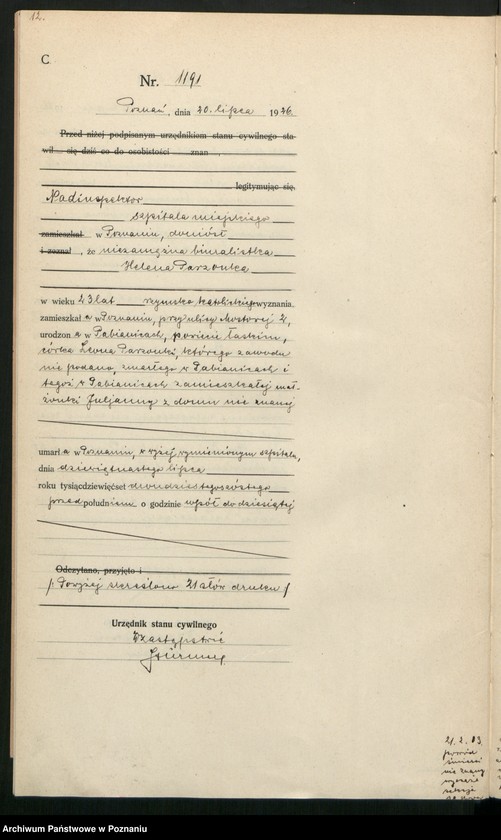 12.
C
Nr. 1191
Poznań, dnia 20. lipca 1926.
Przed niżej podpisanym urzędnikiem stanu cywilnego sta-
wił się dziś co do osobistości znan
legitymując się.
Nadinspektor
szpitala miejskiego
zamieszkał w Poznaniu, doniósł
i zeznał, że niezamężna biuralistka
Helena Parzonka
w wieku 23 lat rzymsko katolickiego wyznania.
zamieszkała w Poznaniu, przy ulicy Mostowej 2,
urodzona w Pabianicach, powiecie łaskim,
córka Leona Parzonki, którego zawodu
nie podano, zmarłego w Pabianicach i
tegoż w Pabianicach zamieszkałej mał-
żonki Juljanny z domu nie znanej
umarła w Poznaniu, w wyżej wymienionym szpitalu,
dnia dziewiętnastego lipca
roku tysiącdziewięćset dwudziestegoszóstego
przed południem o godzinie wpół do dziesiątej
Odczytano, przyjęto i
/: Powyżej skreślono 21 słów druku /
Urzędnik stanu cywilnego
W zastępstwie
21. 2. 83
powód
śmierci
nie znany
Archiwum Państwowe w Poznaniu